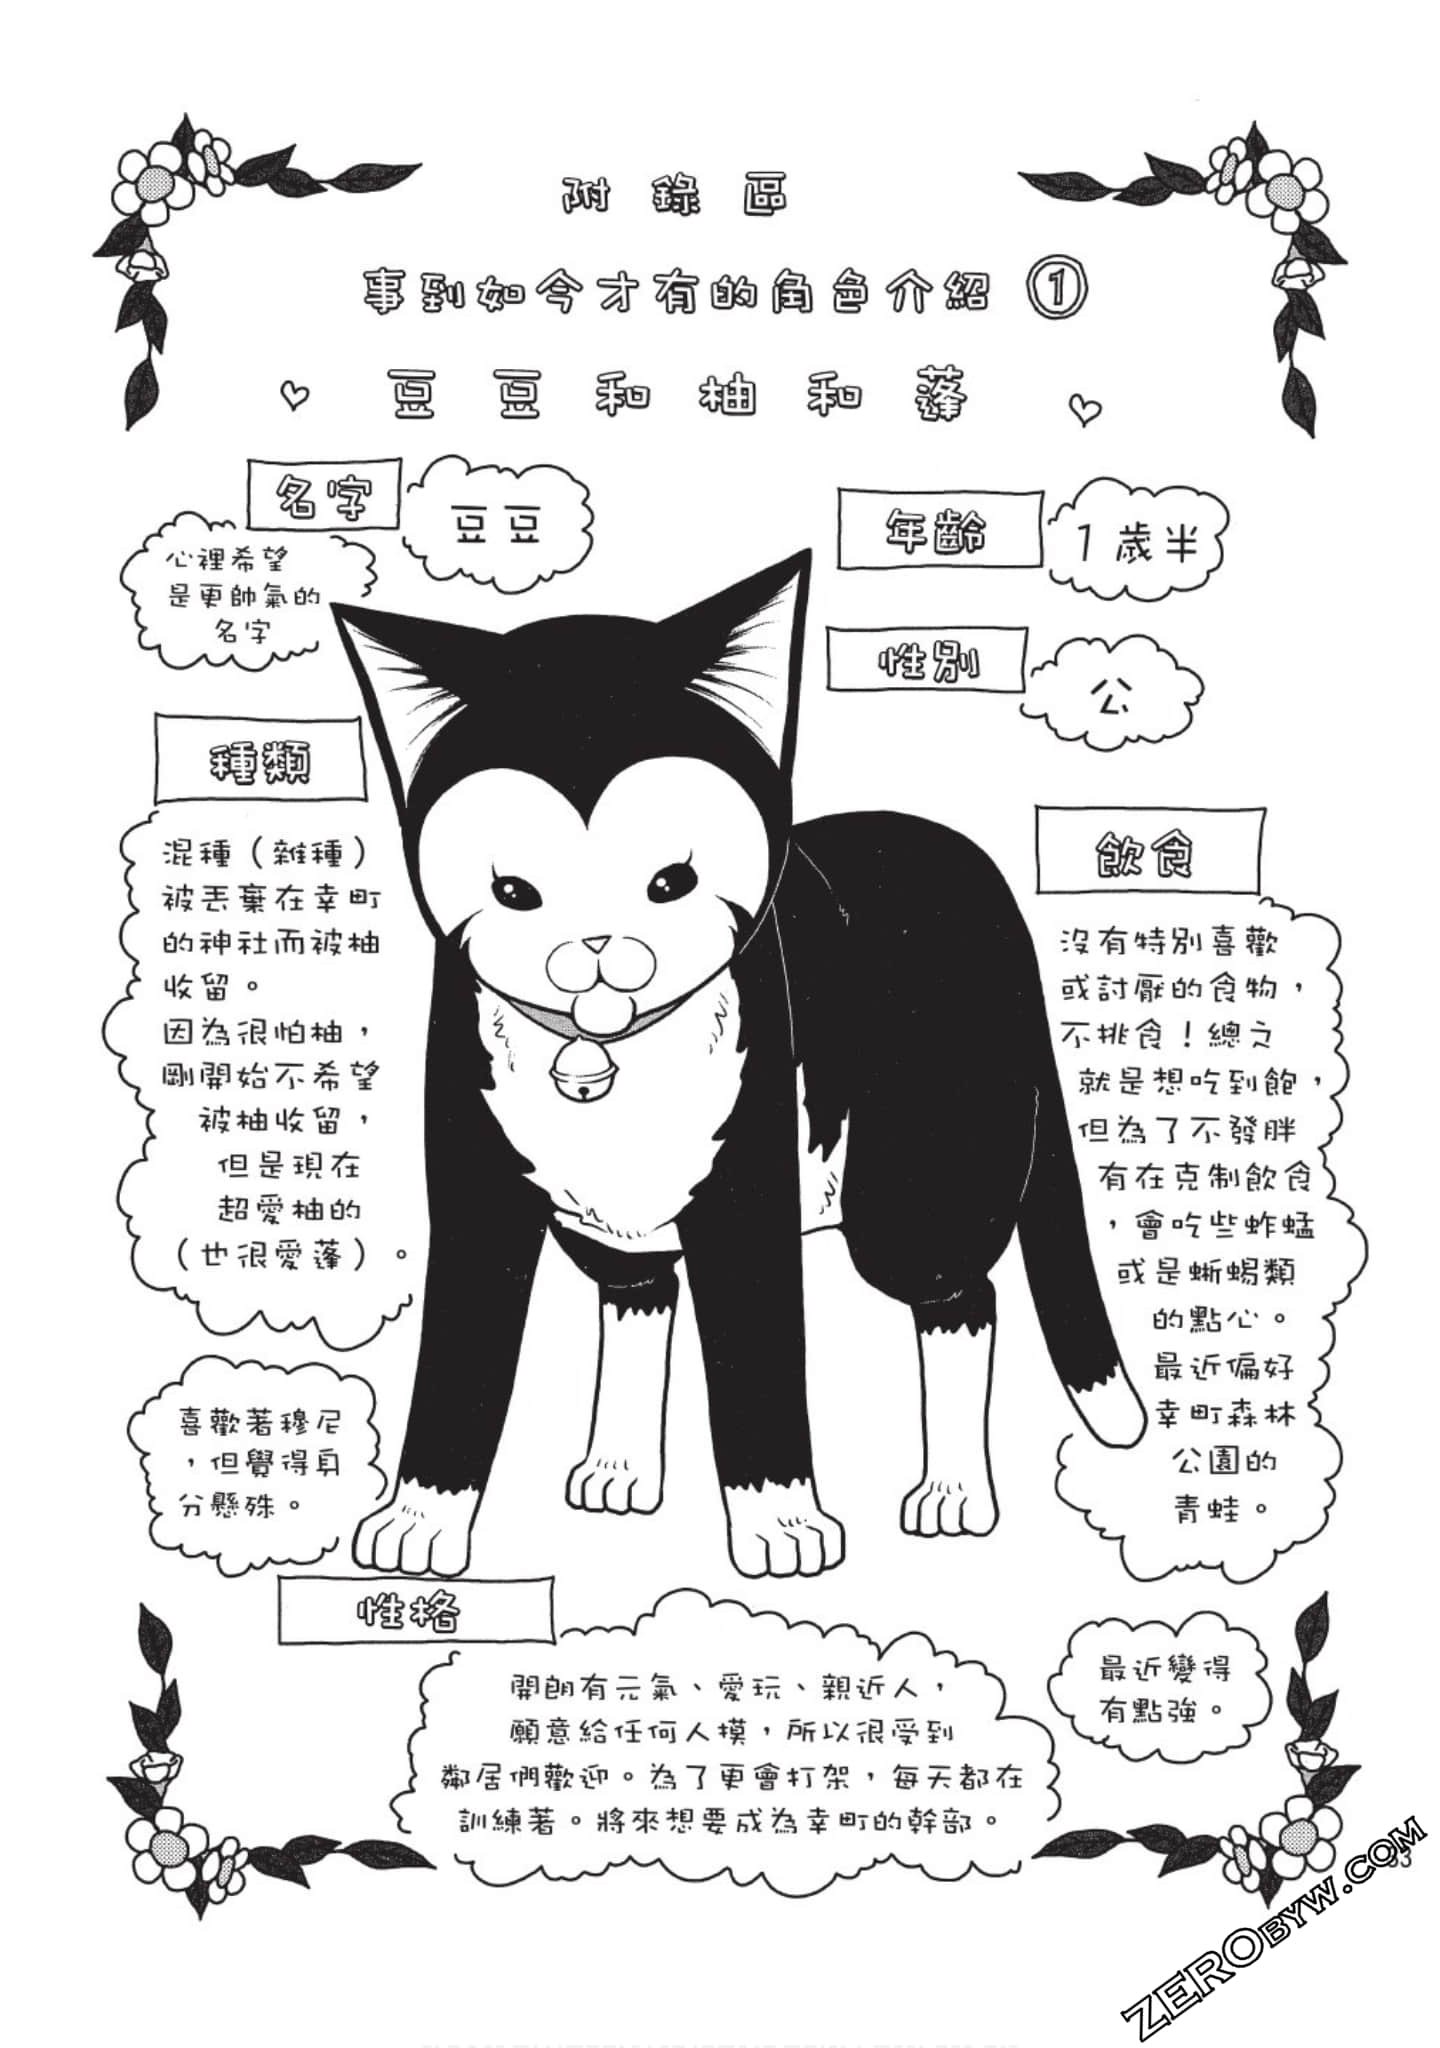 附錄區
事到如今才有的角色介紹①
♡豆豆和柚和蓬♡
名字
豆豆
心裡希望
是更帥氣的
名字
年齡
1歲半
性別
公
種類
混種（雜種）
被丟棄在幸町
的神社而被柚
收留。
因為很怕柚，
剛開始不希望
被柚收留，
但是現在
超愛柚的
（也很愛蓬）。
喜歡著穆尼
，但覺得身
分懸殊。
飲食
沒有特別喜歡
或討厭的食物，
不挑食！總之
就是想吃到飽，
但為了不發胖
有在克制飲食
，會吃些蚱蜢
或是蜥蜴類
的點心。
最近偏好
幸町森林
公園的
青蛙。
性格
開朗有元氣、愛玩、親近人，
願意給任何人摸，所以很受到
鄰居們歡迎。為了更會打架，每天都在
訓練著。將來想要成為幸町的幹部。
最近變得
有點強。
ZEROBYW.COM